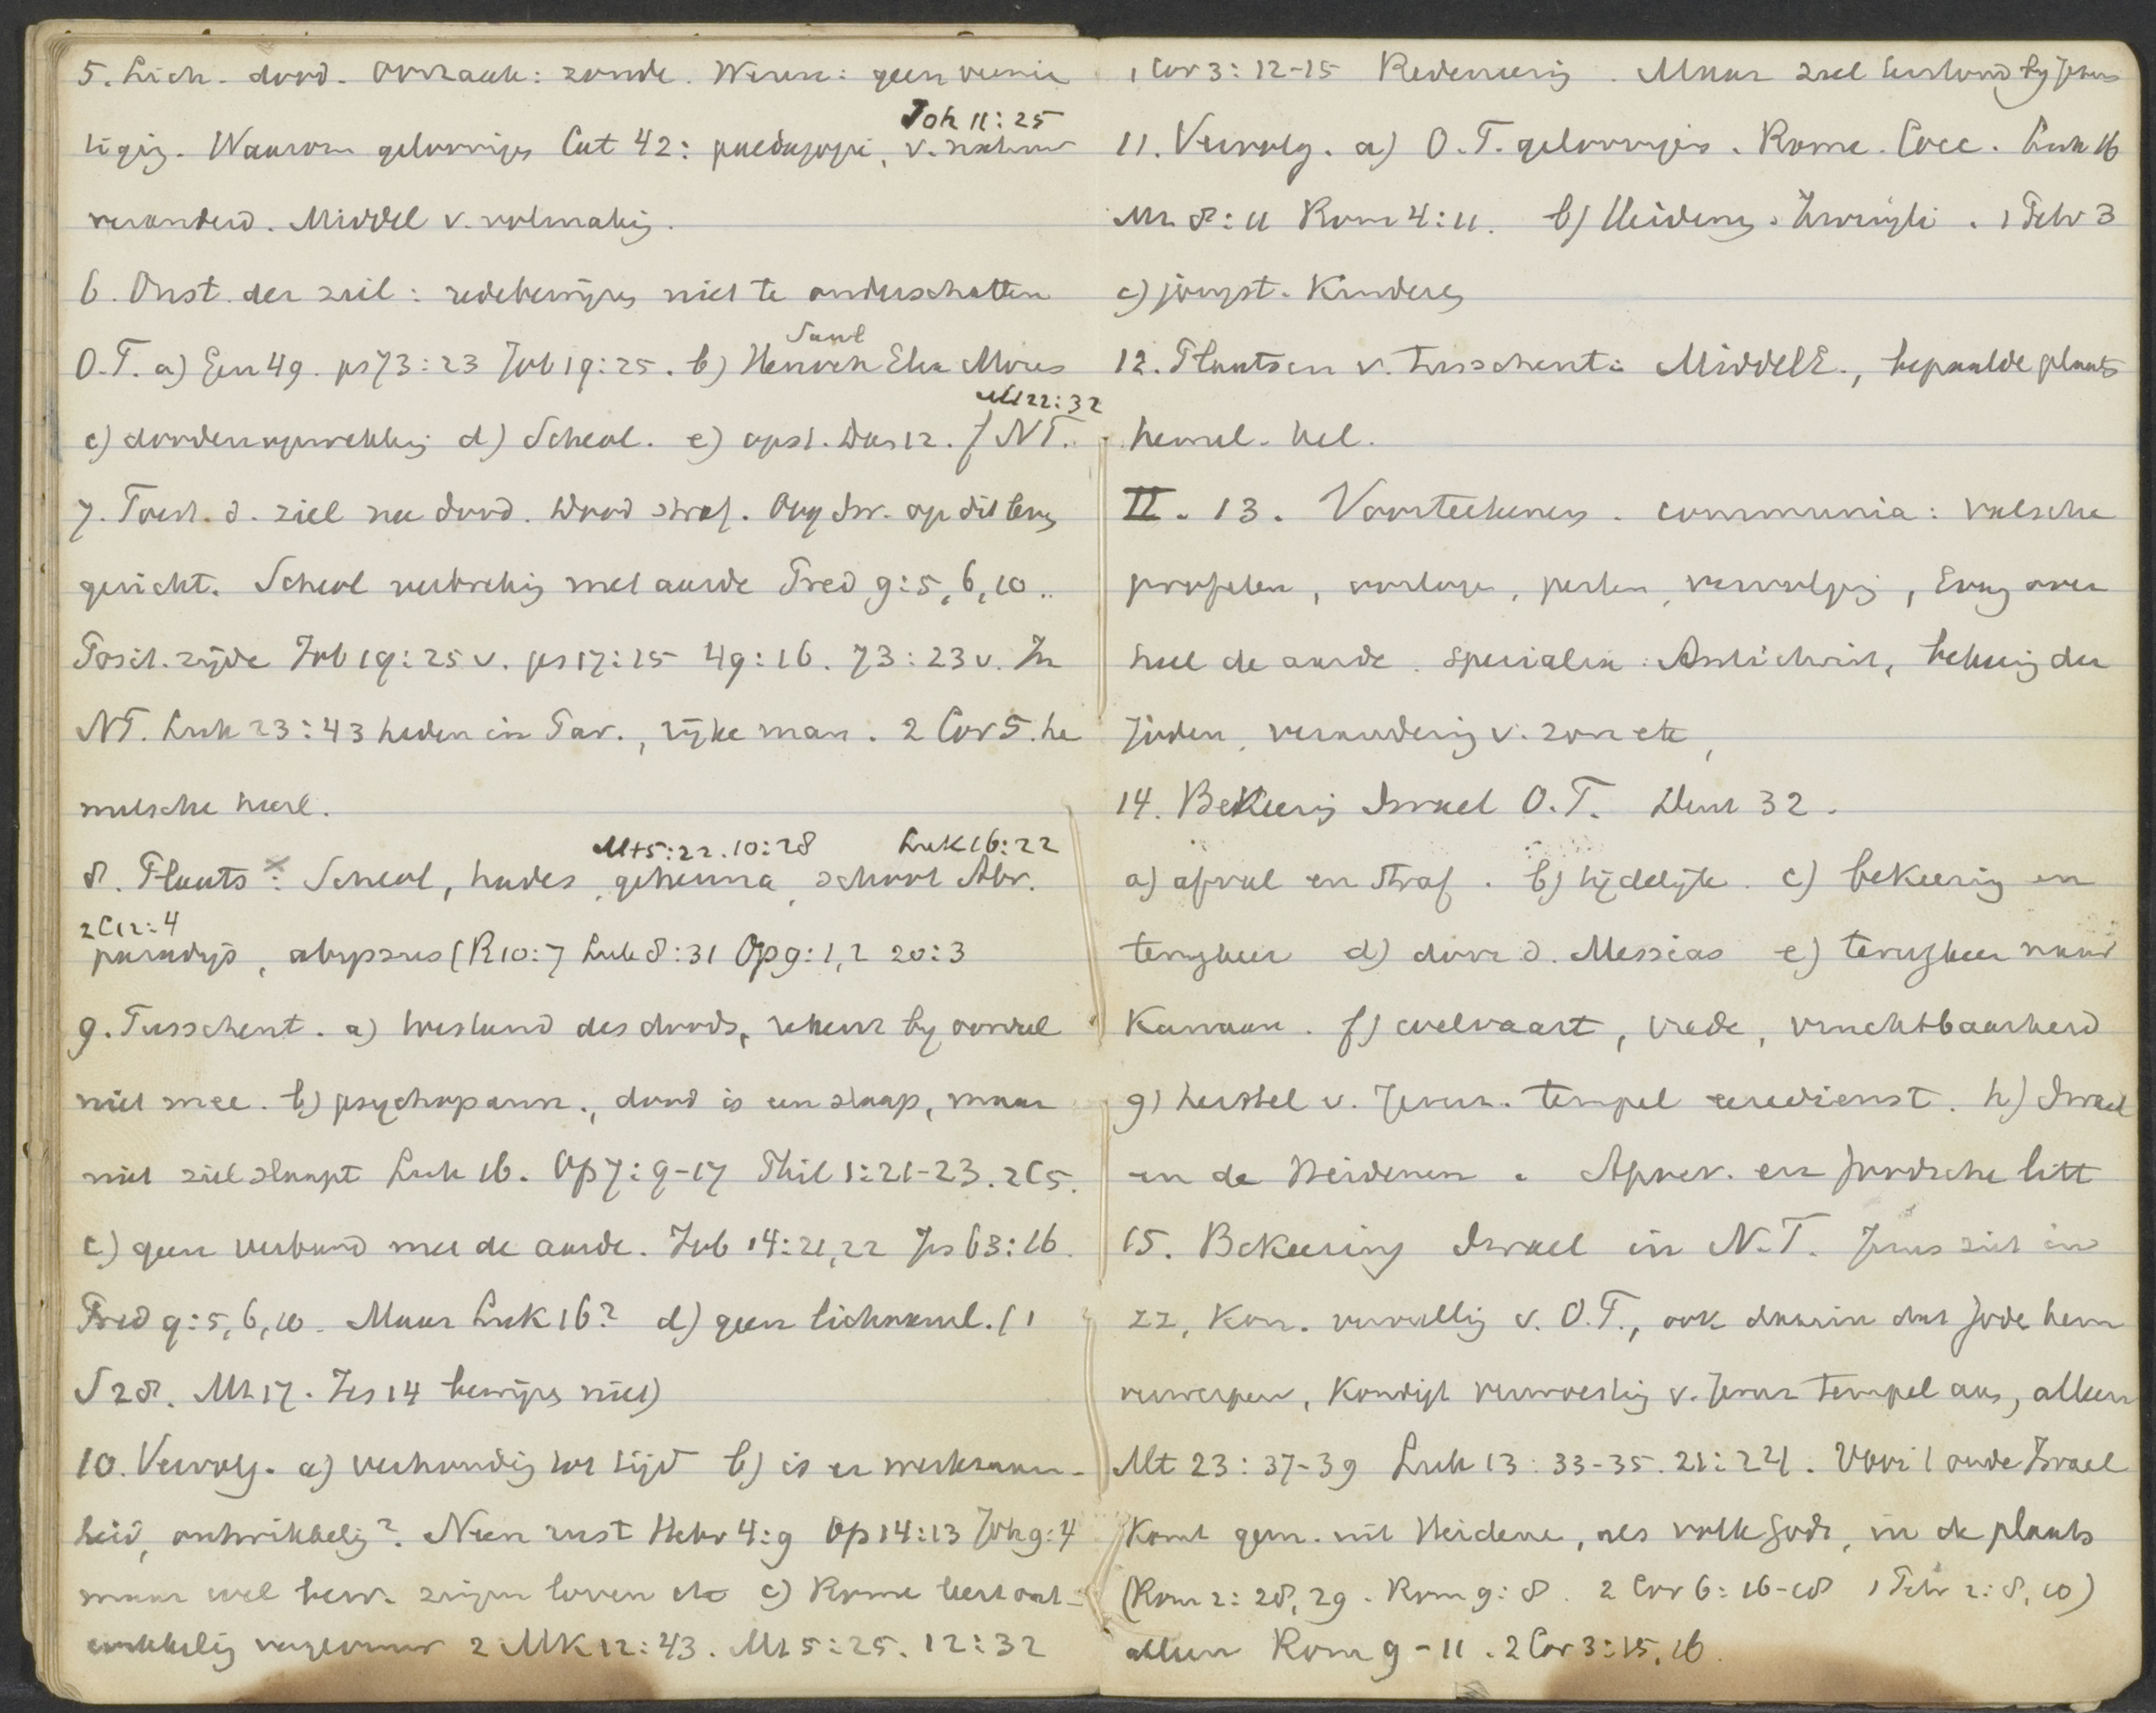 5. Lich. dood. Oorzaak: zonde. Wezen: geen vernie
Joh 11:25
tiging. Waarom geloovigen Cat 42: paedagogie, v. natuur
veranderd. Middel v. volmaking.
6. Onst. der ziel: redebewijzen niet te onderschatten
Saul
O.T. a) Gen 49. ps 73:23 Job 19:25. b) Henoch Elia Mozes
Mt 22:32
c) doodenopwekking d) Scheol. e) opst. Dan 12. f NT.
7. Toest. d. ziel na dood. Dood straf. Oog Isr. op dit leven
gericht. Scheol verbreking met aarde Pred 9:5,6,10..
Posit. zijde Job 19:25 v. ps 17:15 49:16. 73:23 v. In
NT. Luk 23:43 heden in Par., rijke man. 2 Cor 5. he
melsche heerl.
Mt 5:22. 10:28 Luk 16:22
8. Plaats: Scheol, hades, gehenna, schoot Abr.
2 C 12:4
paradijs, abyssus (R 10:7 Luk 8:31 Op 9:1,2 20:3
9. Tusschent. a) toestand des doods, rekent bij oordeel
niet mee. b) psychopann., dood is een slaap, maar
niet ziel slaapt Luk 16. Op 7:9-17 Phil 1:21-23. 2 C 5.
c) geen verband met de aarde. Job 14:21,22 Jes 63:16.
Pred 9:5,6,10. Maar Luk 16? d) geen lichamel. (1
S 28. Mt 17. Jes 14 bewijzen niet)
10. Vervolg. a) verhouding tot tijd b) is er werkzaam-
heid, ontwikkeling? Neen rust Hebr 4:9 Op 14:13 Joh 9:4
maar wel bew. zingen loven etc c) Rome leert ont-
wikkeling vagevuur 2 Mk 12:43. Mt 5:25. 12:32
1 Cor 3:12-15 Redeneering. Maar ziel toestand bij Jezus
11. Vervolg. a) O.T. geloovigen. Rome. Cocc. Luk 16
Mt 8:11 Rom 4:11. b) Heidenen. Zwingli. 1 Petr 3
c) jongst. Kinderen
12. Plaatsen v. tusschent: MiddelE., bepaalde plaats
hemel. hel.
II. 13. Voorteekenen. communia: valsche
profeten, oorlogen, pesten, vervolging, Evang over
heel de aarde. specialia: Antichrist, bekeering der
Joden, verandering v. zon etc,
14. Bekeering Israel O.T. Deut 32.
a) afval en straf. b) tijdelijk. c) bekeering en
terugkeer d) door d. Messias e) terugkeer naar
Kanaan. f) welvaart, vrede, vruchtbaarheid
g) herstel v. Jeruz. tempel eeredienst. h) Israel
en de Heidenen. Apocr. en Joodsche litt
15. Bekeering Israel in N.T. Jezus ziet in
zz, Kon. vervulling v. O.T., ook daarin dat Jode hem
verwerpen, Kondigt verwoesting v. Jeruz tempel aan, alleen
Mt 23:37-39 Luk 13:33-35. 21:24. Voor 't oude Israel
komt gem. uit Heidene, als volk Gods, in de plaats
(Rom 2:28,29. Rom 9:8. 2 Cor 6:16-18 1 Petr 2:8,10)
alleen Rom 9-11. 2 Cor 3:15,16.